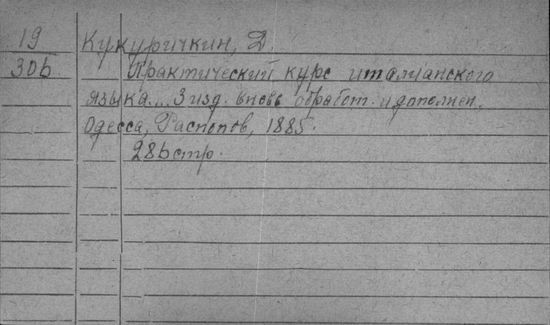 19 Кукуричкин, Д.
306 Практический курс италианского
языка... 3 изд. вновь обработ. и дополнен.
Одесса, Распопов, 1885.
286 стр.